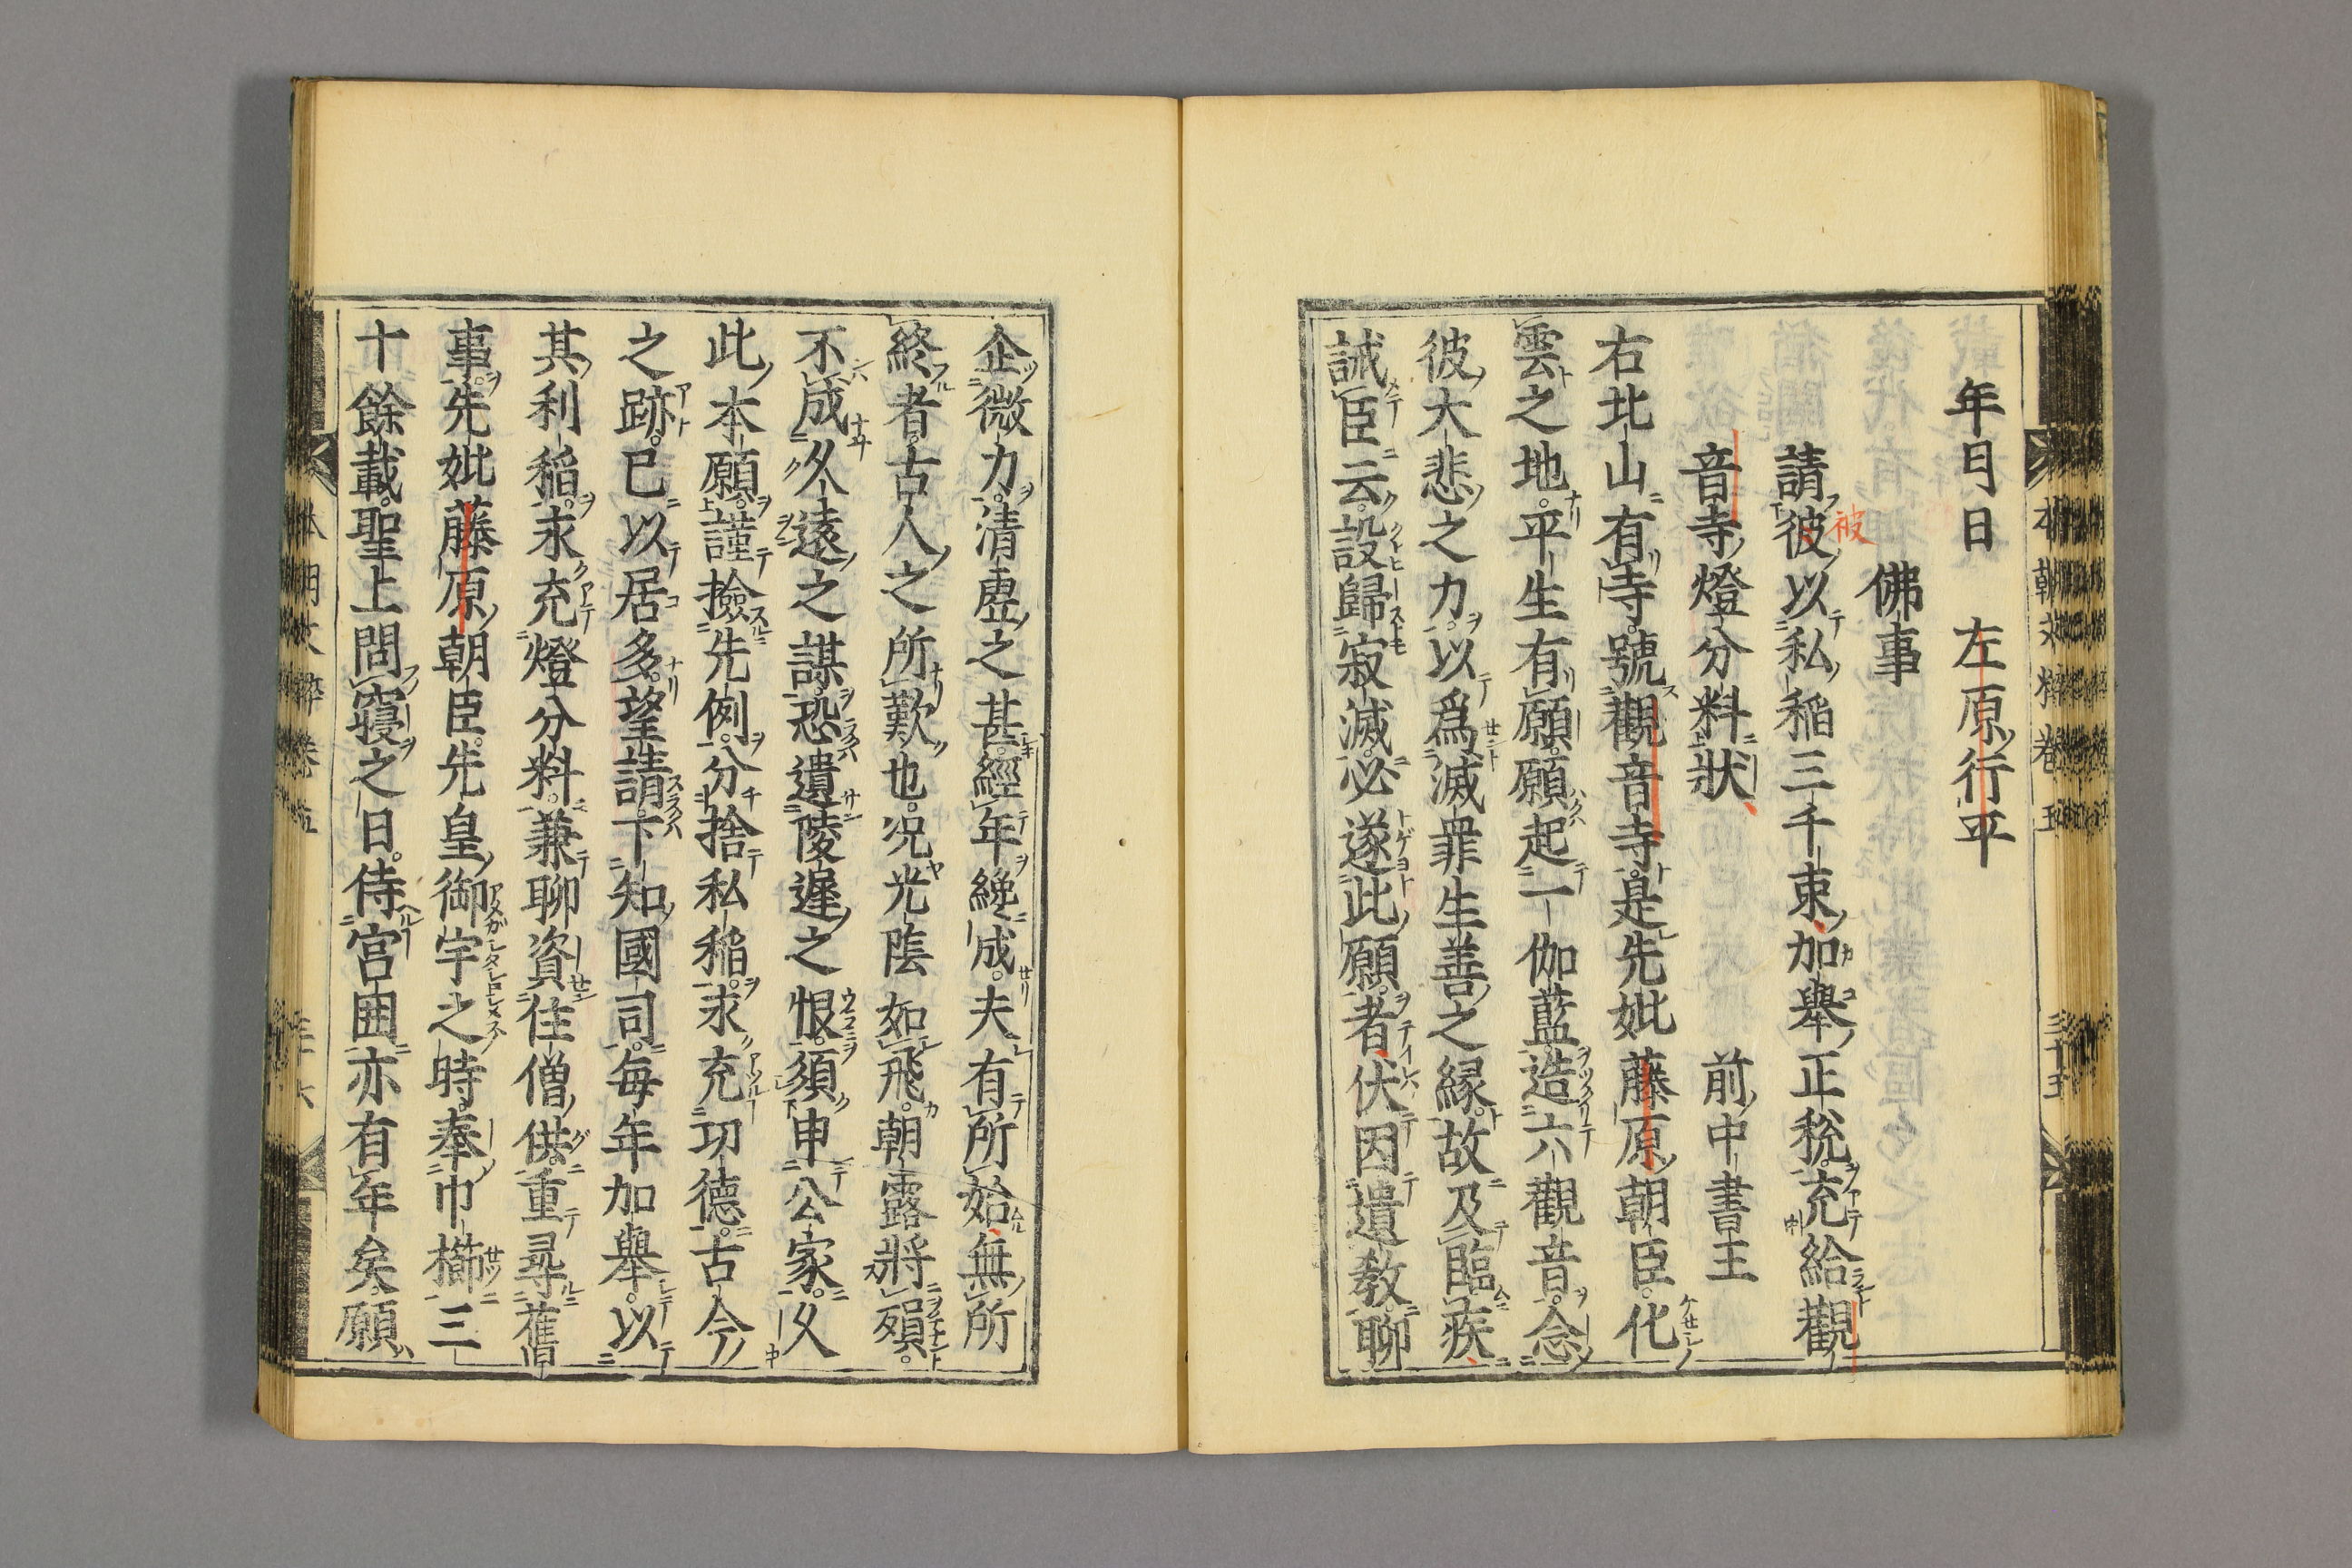 年日日 左原行平
佛事
請彼以私稲三千束加舉正税充給觀
被
音寺燈分料狀 前中書王
右北山有寺號觀音寺是先妣藤原朝臣化
雲之地平生有願願起一伽藍造六觀音念
彼大悲之力以爲滅罪生善之縁故及臨疾
誡臣云設歸寂滅必遂此願者伏因遺教聊
企微力清虚之甚經年纔成夫有所始無所
終者古人之所歎也况光陰如飛朝露將殞
不成久遠之謀恐遺陵遲之恨須申公家以
此本願謹撿先例分捨私稲求充功德古今
之跡已以居多望請下知國司每年加舉以
其利稲求充燈分料兼聊資住僧供重尋舊
事先妣藤原朝臣先皇御宇之時奉巾櫛三
十餘載聖上問寢之日侍宮囲亦有年矣願
本朝文粹卷五 三十五
本朝文粹卷五 三十六